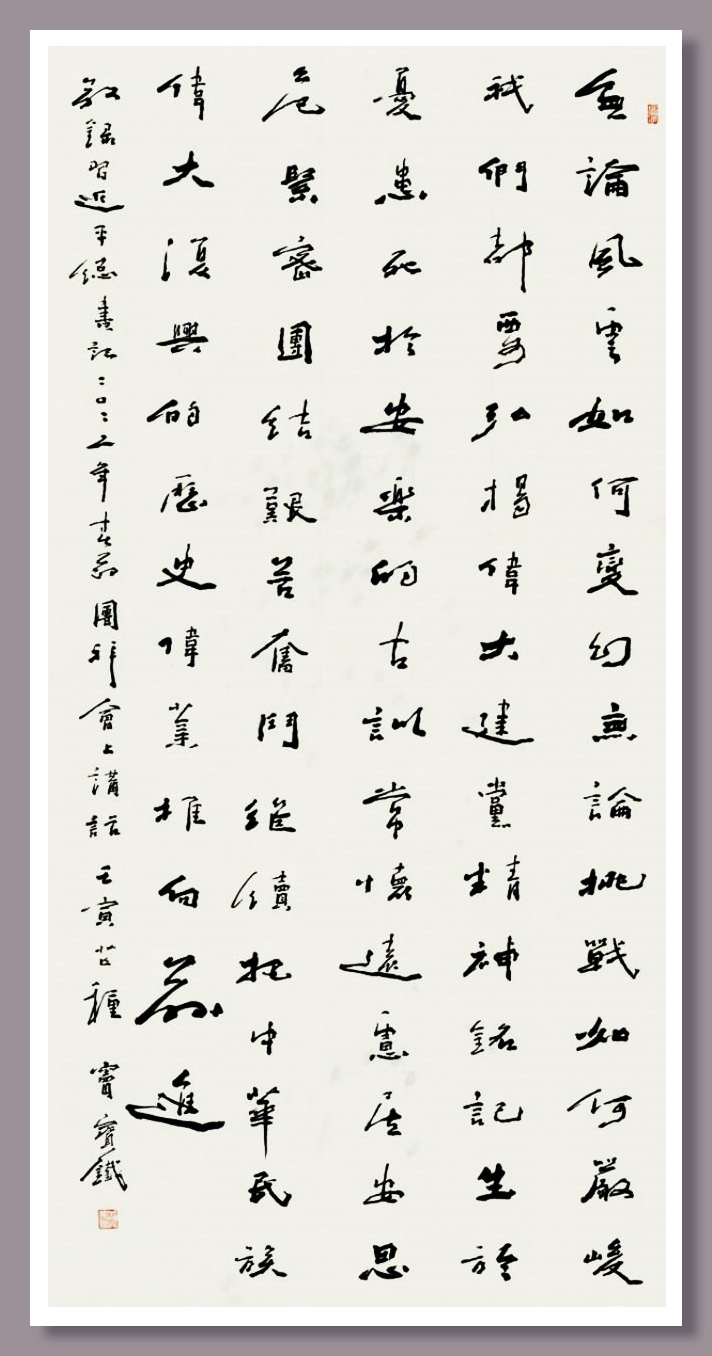 無論風雲如何變幻無論挑戰如何嚴峻
我們都要弘揚偉大建黨精神銘記生於
憂患死於安樂的古訓常懷遠慮居安思
危緊密團結艱苦奮鬥繼續把中華民族
偉大復興的歷史偉業推向前進
敬錄習近平總書記二〇二二年春節團拜會上講話 壬寅芒種 竇寶鐵